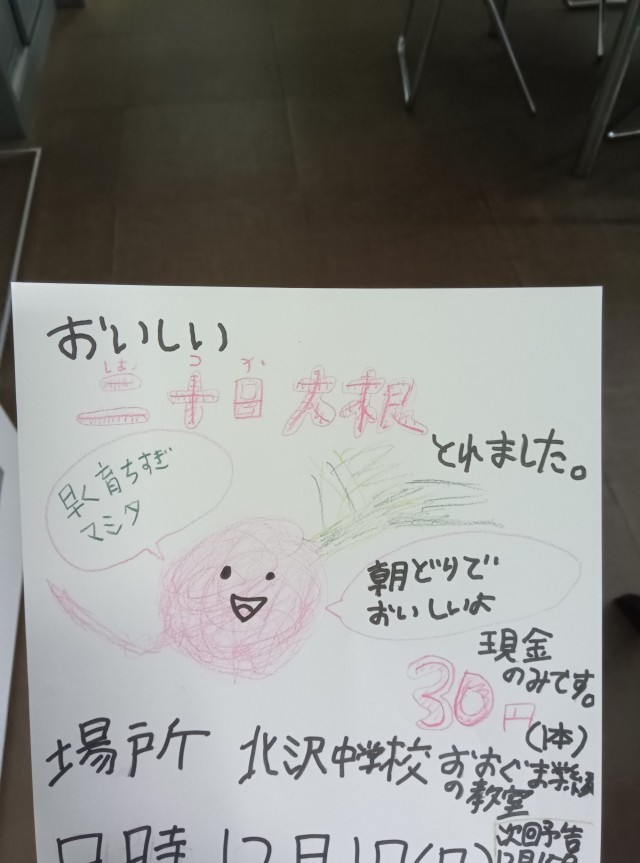 おいしい
はつか
二十日大根
とれました。
早く育ちすぎ
マシタ
朝どりで
おいしいよ
現金
のみです。
30円
(1本)
場所 北沢中学校 おおぐま学級
の教室
日時 12月1日(
次回予告